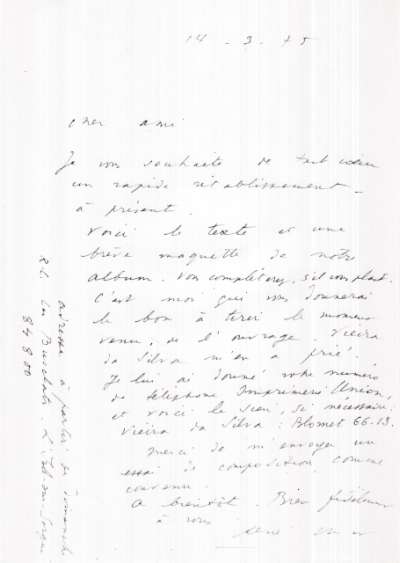 14 - 3. 75
cher ami
Je vous souhaite de tout cœur
un rapide rétablissement -
à présent.
Voici le texte et une
brève maquette de notre
album. Vous complèterez, s'il vous plaît.
C'est moi qui vous donnerai
le bon à tirer le moment
venu, de l'ouvrage. Vieira
da Silva m'en a prié.
Je lui ai donné votre numéro
de téléphone, Imprimerie Union,
et voici le sien, si nécessaire:
Vieira da Silva : Blomet 66-13.
Merci de m'envoyer un
essai de composition comme
convenu.
A bientôt. Bien fidèlement
à vous
René Char
adresse à partir de dimanche
Les Busclats. L'Isle sur Sorgue
84 800